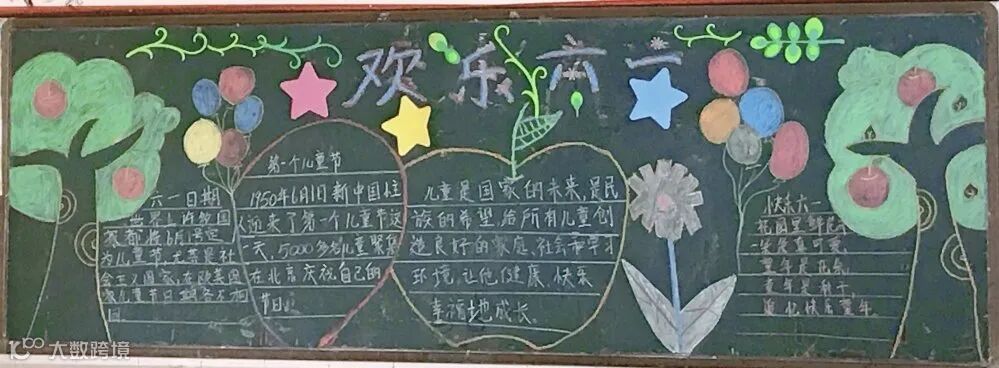 欢乐六一
六一日期
世界上许多国
家都将6月1号定
为儿童节,尤其是社
会主义国家,在欧美国
家儿童节日期各不相
同
第一个儿童节
1950年6月1日新中国
迎来了第一个儿童节这
一天,5000多名儿童聚集
在北京庆祝自己的
节日。
儿童是国家的未来,是民
族的希望,给所有儿童创
造良好的家庭,社会和学习
环境,让他健康、快乐
幸福地成长。
快乐六一
花园里鲜花
童年是花朵,
童年是种子,
大数跨境